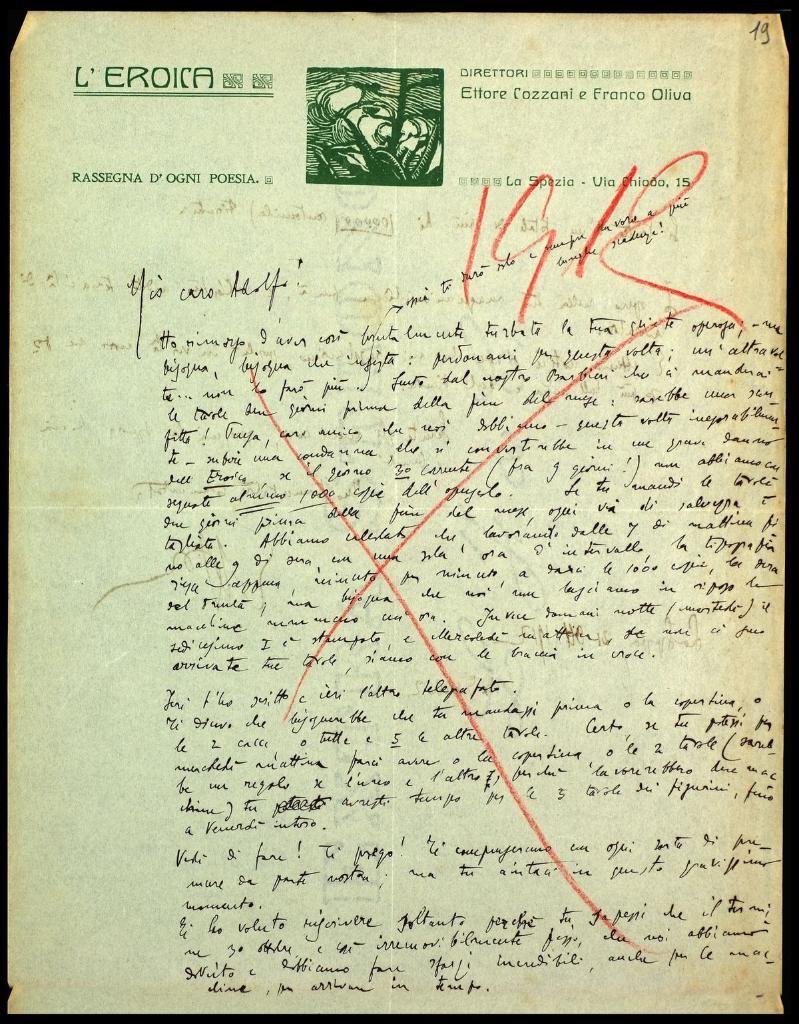 19
L'EROICA
DIRETTORI
Ettore Cozzani e Franco Oliva
RASSEGNA D'OGNI POESIA.
La Spezia - Via Chiodo, 15
1912
Mio caro Adolfo!
oggi ti sarò solo e sempre
Ho rimorso d'aver così brutalmente turbata la tua quiete operosa, - ma
bisogna, bisogna che insista: perdonami per questa volta; un'altra vol-
ta... non lo farò più. dal nostro Barbieri che ci manderai
le tavole due giorni prima della fine del mese: sarebbe una scon-
fitta! Pensa, caro amico, che noi dobbiamo - questa volta inesorabilmen-
te - subire una condanna, che si convertirebbe in un grave danno
dell'Eroica se il giorno 30 corrente (fra 9 giorni!) non abbiamo con
segnate almeno 1000 copie dell'opuscolo. Se tu mandi le tavole
due giorni prima della fine del mese, ogni via di salvezza è
tagliata. Abbiamo calcolato che lavorando dalle 7 di mattina fi
no alle 9 di sera con una sola ora d'intervallo la tipografia
appena, minuto per minuto, a darci le 1000 copie, la sera
del trenta; ma bisogna che noi non lasciamo in riposo la
macchina nemmeno un'ora. Invece domani notte (martedì) il
sedicesimo I è stampato, e Mercoledì mattina se non ci sono
arrivate tue tavole, siamo con le braccia in croce.
Ieri t'ho scritto e ieri l'altro telegrafato.
Ti dicevo che bisognerebbe che tu mandassi prima o la copertina, o
le 2 o tutte e 5 le altre tavole. Certo, se tu potessi per
mercoledì mattina farci avere o la copertina o le 2 tavole (sareb-
be un regalo se l'uno e l'altro, perché lavorerebbero due mac
chine) tu avresti tempo per le 3 tavole dei figurini, fino
a Venerdì intero.
Vedi di fare! Ti prego! Ti compenseremo con ogni sorta di pre-
mure da parte nostra; ma tu aiutaci in questo gravissimo
momento.
Ti ho voluto riscrivere soltanto perché tu sapessi che il termi
ne 30 ottobre è così irremovibilmente fisso, che noi abbiamo
dovuto e dobbiamo fare sforzi incredibili, anche per le mac-
chine, per arrivare in tempo.